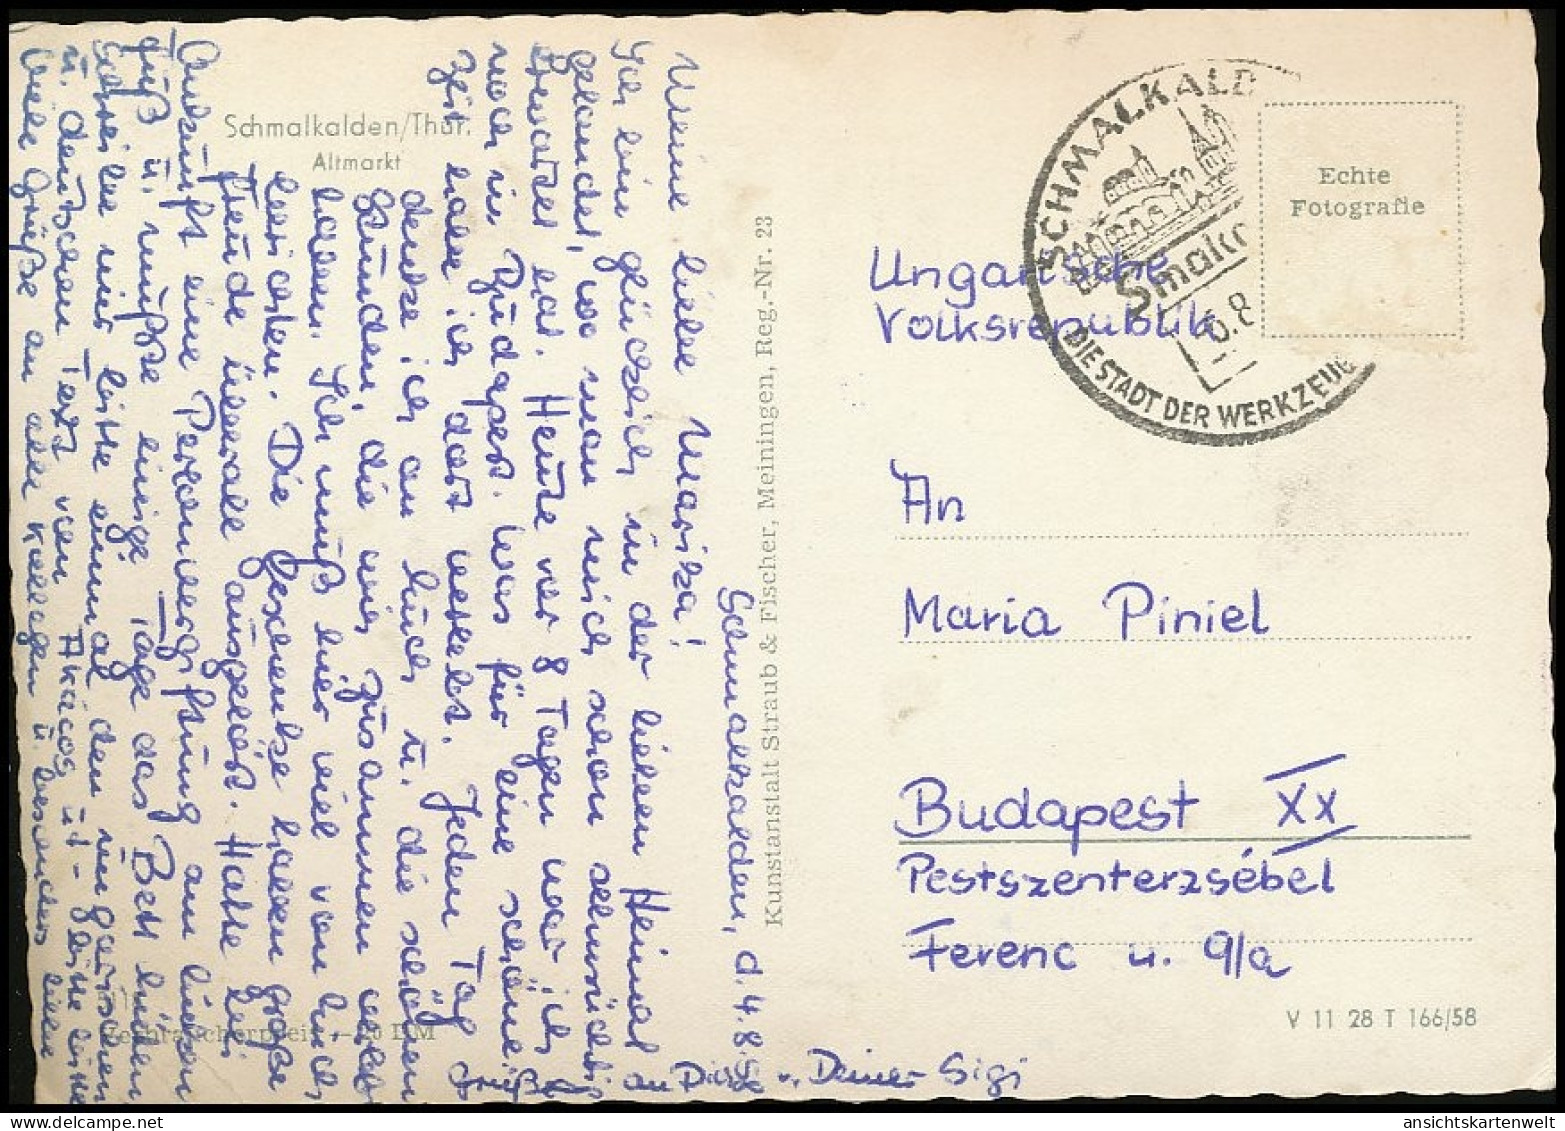 Schmalkalden/Thür.
Altmarkt
Schmalkalden, d. 4.8.58
Meine liebe Marika!
Ich bin glücklich in der lieben Heimat
gelandet, wo man mich schon sehnsüchtig
erwartet hat. Heute vor 8 Tagen war ich
noch in Budapest. Was für eine schöne
Zeit habe ich dort verlebt. Jeden Tag
denke ich an Euch u. die schönen
Stunden, die wir zusammen verlebt
haben. Ich muß hier viel von Euch
berichten. Die Geschenke haben große
Freude überall ausgelöst. Hatte bei
Ankunft eine am linken
Fuß u. mußte einige Tage das Bett hüten
Schreibe mir bitte einmal den ungarischen
u. deutschen Text von Akácos út - bitte bitte
Viele Grüße an alle Kollegen u. besonders liebe
Grüße an Dich v. Deiner Sigi
Verbraucherpreis DM
Kunstanstalt Straub & Fischer, Meiningen, Reg.-Nr. 23
SCHMALKALD
Smalc
6.8
DIE STADT DER WERKZEUG
Echte
Fotografie
Ungarische
Volksrepublik
An
Maria Piniel
Budapest XX
Pestszenterzsébel
Ferenc u. 9/a
V 11 28 T 166/58
ansichtskartenwelt